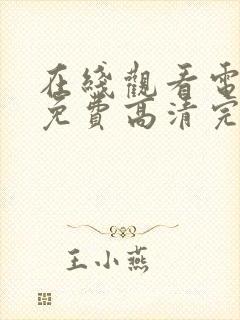 在綫觀看電
免費高清完
王小燕